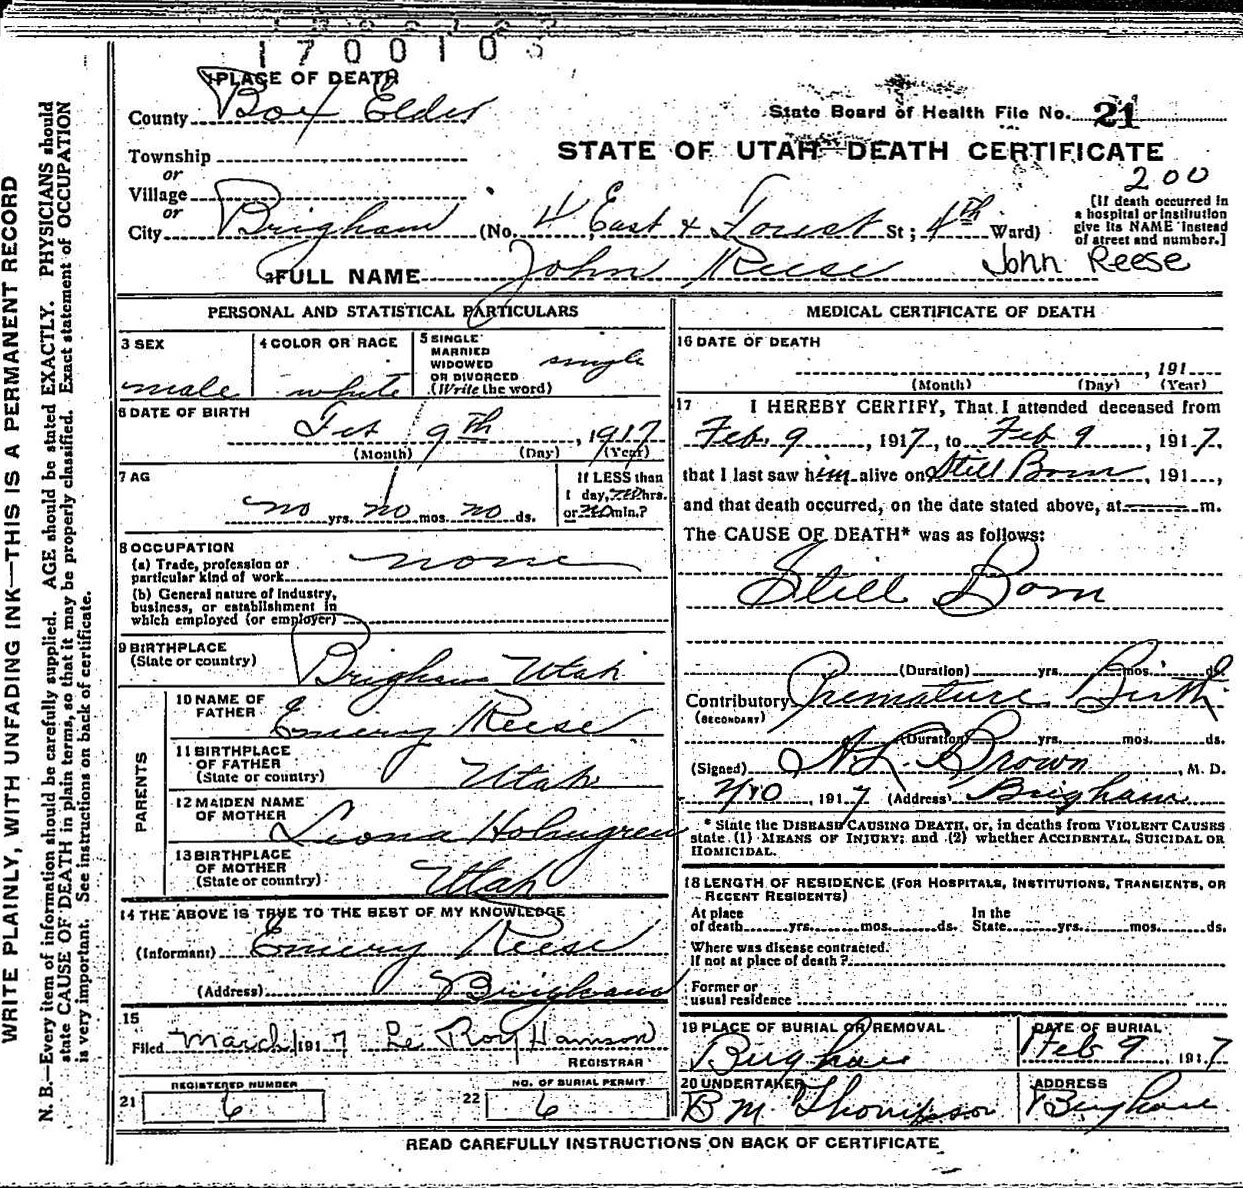 1700103
1 PLACE OF DEATH
County Box Elder
State Board of Health File No. 21
Township
or
STATE OF UTAH DEATH CERTIFICATE
Village
or
200
City Brigham (No. 4 East & Forest St; 4th Ward)
[If death occurred in
a hospital or institution
give its NAME instead
of street and number.]
2 FULL NAME John Reese John Reese
PERSONAL AND STATISTICAL PARTICULARS
3 SEX
male
4 COLOR OR RACE
white
5 SINGLE
MARRIED
WIDOWED
OR DIVORCED
(Write the word)
single
6 DATE OF BIRTH
Feb 9th, 1917
(Month) (Day) (Year)
7 AG
no yrs. no mos. no ds.
If LESS than
1 day, no hrs.
or no min.?
8 OCCUPATION
(a) Trade, profession or
particular kind of work none
(b) General nature of industry,
business, or establishment in
which employed (or employer)
9 BIRTHPLACE
(State or country) Brigham Utah
PARENTS
10 NAME OF
FATHER Emery Reese
11 BIRTHPLACE
OF FATHER
(State or country) Utah
12 MAIDEN NAME
OF MOTHER Leona Holmgren
13 BIRTHPLACE
OF MOTHER
(State or country) Utah
14 THE ABOVE IS TRUE TO THE BEST OF MY KNOWLEDGE
(Informant) Emery Reese
(Address) Brigham
15
Filed March 1 1917 Le Roy Hanson
REGISTRAR
REGISTERED NUMBER
21 6
NO. OF BURIAL PERMIT
22 6
MEDICAL CERTIFICATE OF DEATH
16 DATE OF DEATH
, 191
(Month) (Day) (Year)
17 I HEREBY CERTIFY, That I attended deceased from
Feb. 9, 1917, to Feb 9, 1917,
that I last saw him alive on Still Born, 191...,
and that death occurred, on the date stated above, at m.
The CAUSE OF DEATH* was as follows:
Still Born
(Duration) yrs. mos. ds.
Contributory Premature Birth
(SECONDARY)
(Duration) yrs. mos. ds.
(Signed) A L Brown, M. D.
2/10, 1917 (Address) Brigham
* State the DISEASE CAUSING DEATH, or, in deaths from VIOLENT CAUSES
state (1) MEANS OF INJURY; and (2) whether ACCIDENTAL, SUICIDAL OR
HOMICIDAL.
18 LENGTH OF RESIDENCE (FOR HOSPITALS, INSTITUTIONS, TRANSIENTS, OR
RECENT RESIDENTS)
At place
of death yrs. mos. ds.
In the
State yrs. mos. ds.
Where was disease contracted.
If not at place of death?
Former or
usual residence
19 PLACE OF BURIAL OR REMOVAL
Brigham
DATE OF BURIAL
Feb 9, 1917
20 UNDERTAKER
B M Thompson
ADDRESS
Brigham
READ CAREFULLY INSTRUCTIONS ON BACK OF CERTIFICATE
WRITE PLAINLY, WITH UNFADING INK—THIS IS A PERMANENT RECORD
N. B.—Every item of information should be carefully supplied. AGE should be stated EXACTLY. PHYSICIANS should
state CAUSE OF DEATH in plain terms, so that it may be properly classified. Exact statement of OCCUPATION
is very important. See instructions on back of certificate.